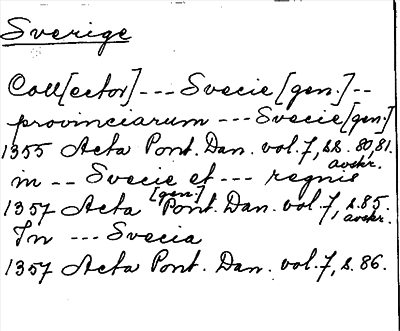 Sverige
Coll[ector] --- Svecie [gen.] --
provinciarum --- Svecie [gen.]
1355 Acta Pont. Dan. vol. 7, ss. 80, 81.
avskr.
in -- Svecie et --- regnis
[gen.]
1357 Acta Pont. Dan. vol. 7, s. 85.
avskr.
In --- Svecia
1357 Acta Pont. Dan. vol. 7, s. 86.